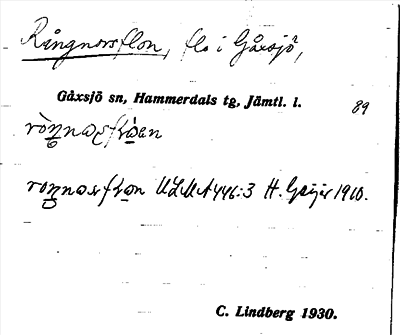 Rångnorsflon, flo i Gåxsjö,
Gåxsjö sn, Hammerdals tg, Jämtl. l. 89
ULMA 446:3 H. Geijer 1910.
C. Lindberg 1930.